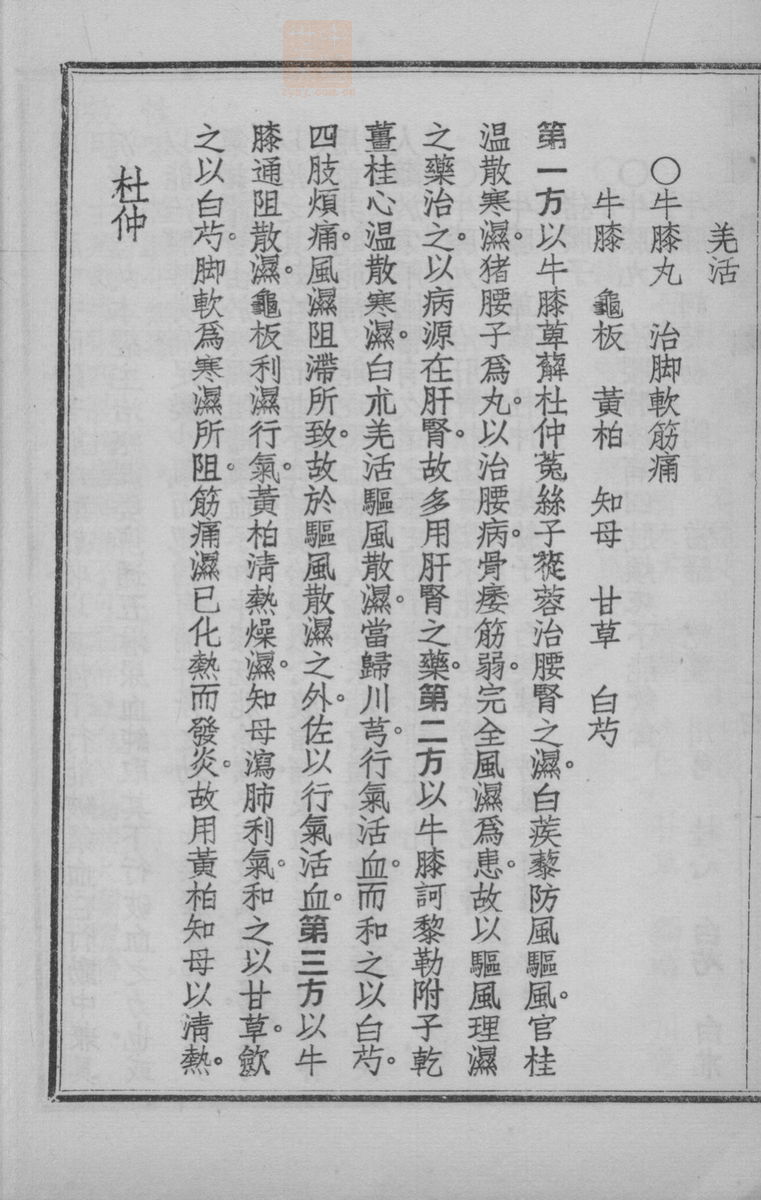 羌活
〇牛膝丸　治脚軟筋痛
牛膝　龜板　黃柏　知母　甘草　白芍
第一方以牛膝萆薢杜仲菟絲子蓯蓉治腰腎之濕。白蒺藜防風驅風。官桂
温散寒濕。猪腰子爲丸。以治腰病。骨痿筋弱。完全風濕爲患。故以驅風理濕
之藥治之。以病源在肝腎。故多用肝腎之藥。第二方以牛膝訶黎勒附子乾
薑桂心温散寒濕。白朮羌活驅風散濕。當歸川芎。行氣活血。而和之以白芍。
四肢煩痛。風濕阻滯所致。故於驅風散濕之外。佐以行氣活血。第三方以牛
膝通阻散濕。龜板利濕行氣。黃柏淸熱燥濕。知母瀉肺利氣。和之以甘草。歛
之以白芍。脚軟爲寒濕所阻。筋痛濕已化熱而發炎。故用黃柏知母以淸熱。
杜仲